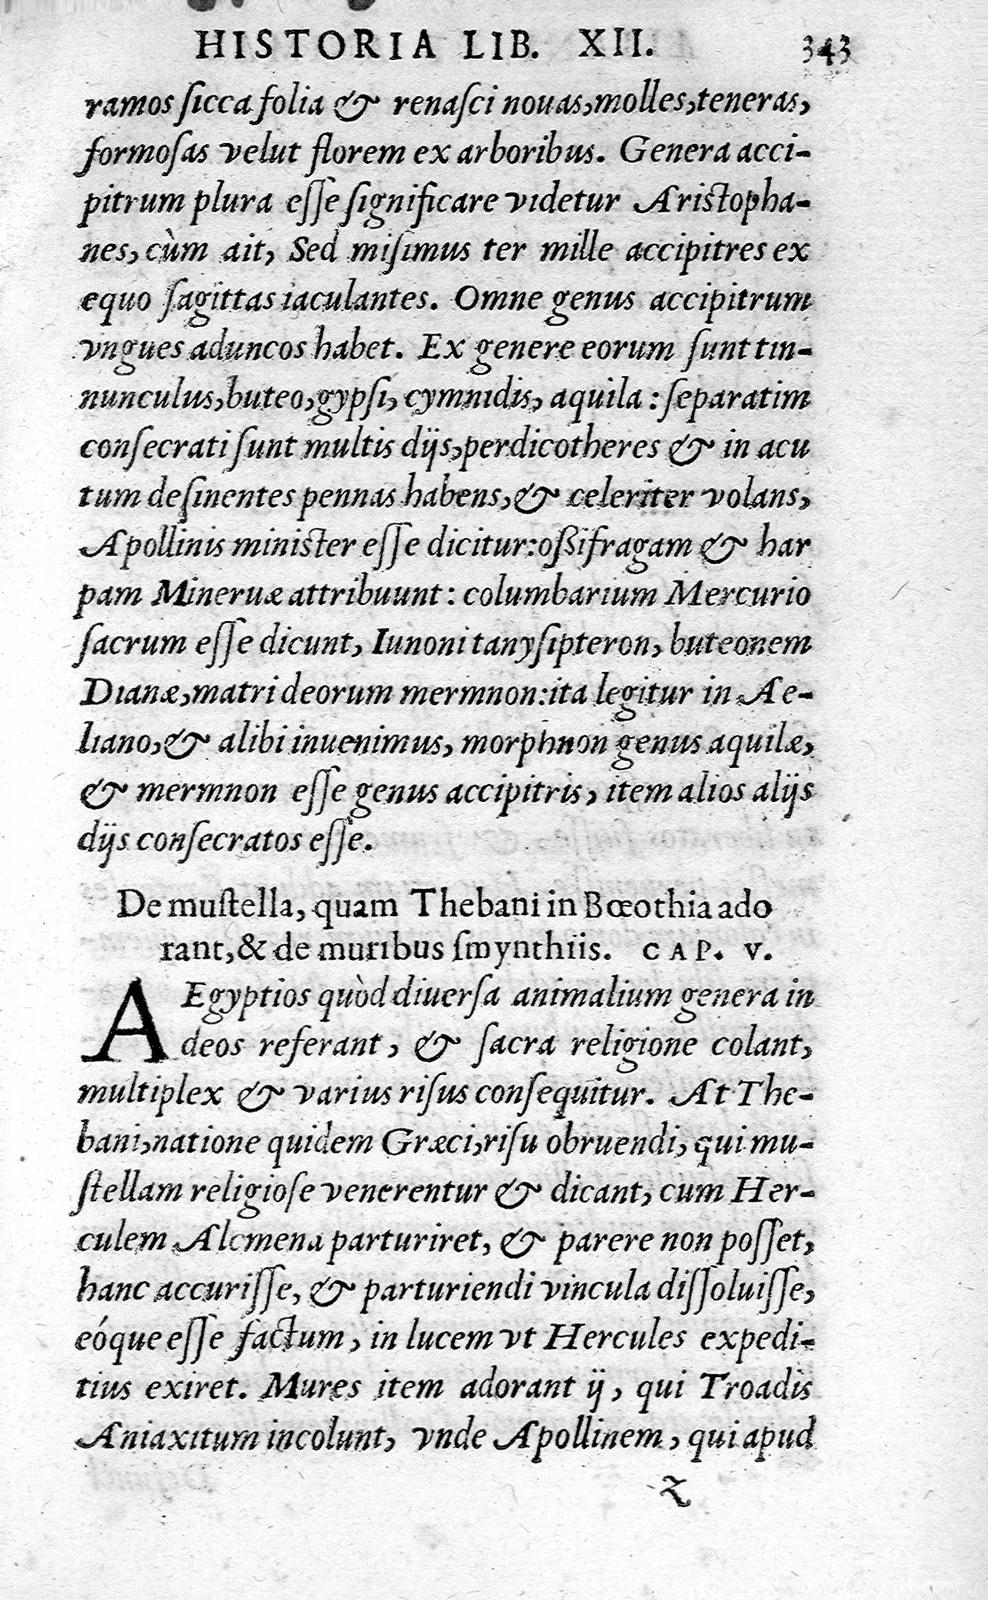 HISTORIA LIB. XII. 343
ramos ſicca folia & renaſci nouas, molles, teneras,
formoſas velut florem ex arboribus. Genera acci-
pitrum plura eſſe ſignificare videtur Ariſtopha-
nes, cùm ait, Sed miſimus ter mille accipitres ex
equo ſagittas iaculantes. Omne genus accipitrum
vngues aduncos habet. Ex genere eorum ſunt tin-
nunculus, buteo, gypſi, cymnidis, aquila: ſeparatim
conſecrati ſunt multis dijs, perdicotheres & in acu
tum deſinentes pennas habens, & celeriter volans,
Apollinis miniſter eſſe dicitur: oßifragam & har
pam Mineruæ attribuunt: columbarium Mercurio
ſacrum eſſe dicunt, Iunoni tanyſipteron, buteonem
Dianæ, matri deorum mermnon: ita legitur in Ae-
liano, & alibi inuenimus, morphnon genus aquilæ,
& mermnon eſſe genus accipitris, item alios alijs
dijs conſecratos eſſe.
De muſtella, quam Thebani in Bœothia ado
rant, & de muribus ſmynthiis. CAP. V.
AEgyptios quòd diuerſa animalium genera in
deos referant, & ſacra religione colant,
multiplex & varius riſus conſequitur. At The-
bani, natione quidem Græci, riſu obruendi, qui mu-
ſtellam religioſe venerentur & dicant, cum Her-
culem Alcmena parturiret, & parere non poſſet,
hanc accuriſſe, & parturiendi vincula diſſoluiſſe,
eóque eſſe factum, in lucem vt Hercules expedi-
tius exiret. Mures item adorant ij, qui Troadis
Aniaxitum incolunt, vnde Apollinem, qui apud
z